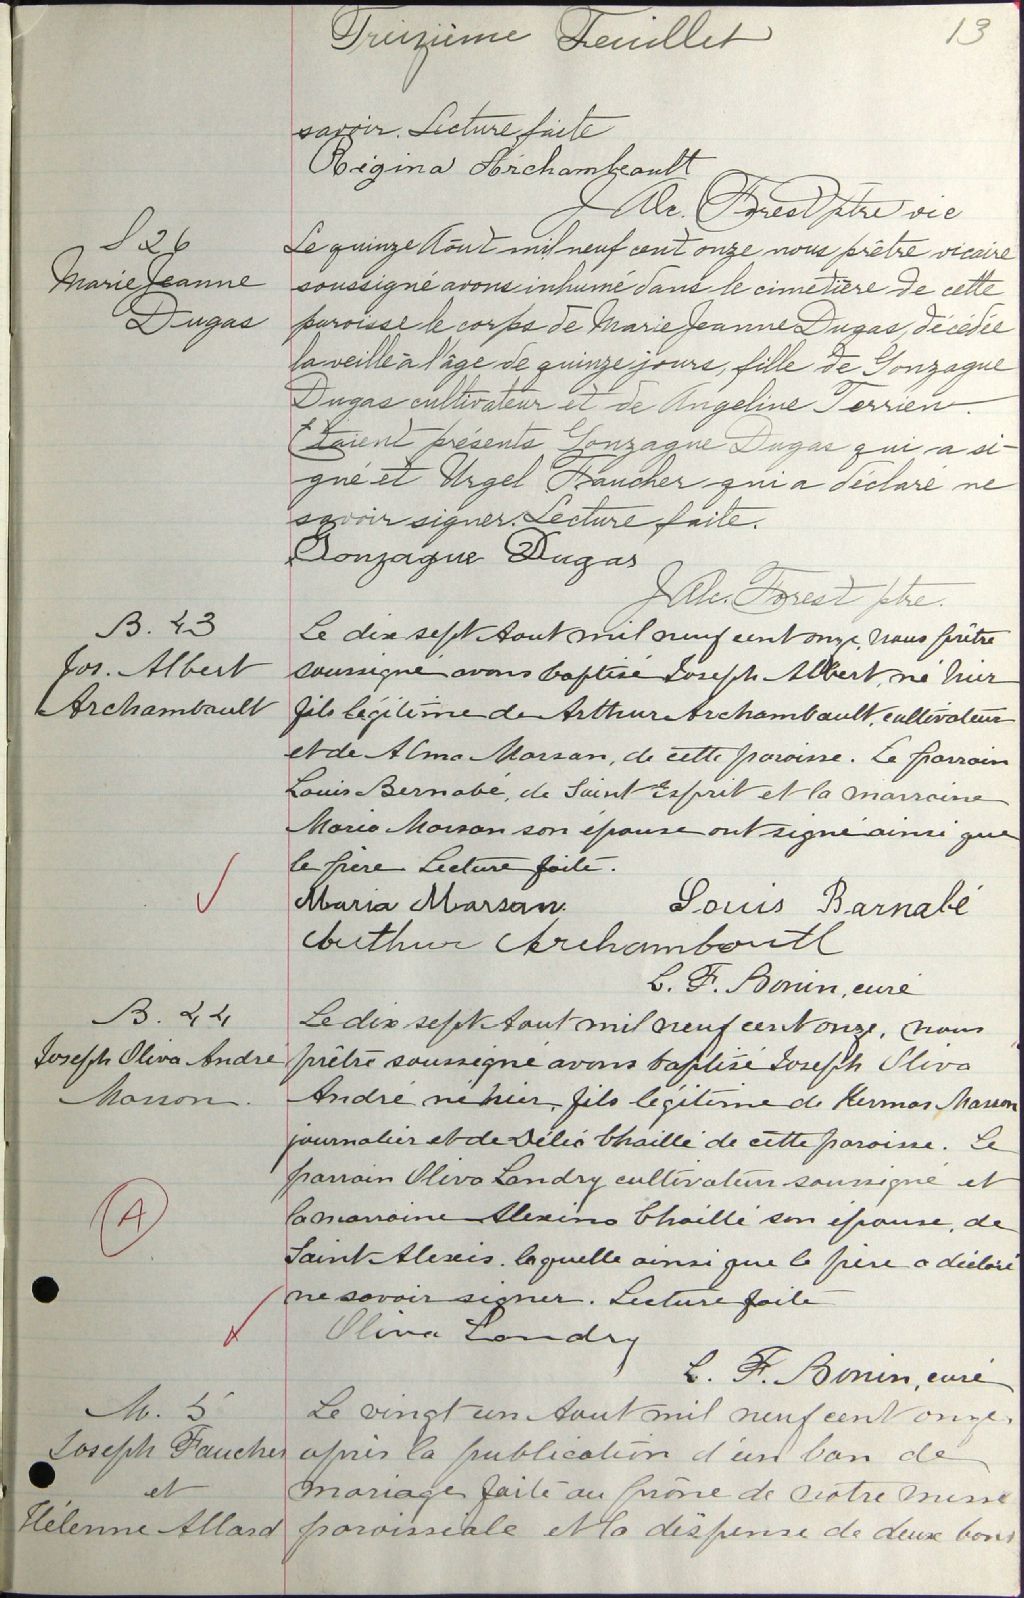 Treizième Feuillet
13
savoir. Lecture faite
Régina Archambeault
J Alc. Forest ptre vic
S 26
Marie Jeanne
Dugas
Le quinze Août mil neuf cent onze nous prêtre vicaire
soussigné avons inhumé dans le cimetière de cette
paroisse le corps de Marie Jeanne Dugas, décédée
la veille à l'âge de quinze jours, fille de Gonzague
Dugas cultivateur et de Angeline Terrien.
Etaient présents Gonzague Dugas qui a si-
gné et Urgel Faucher qui a déclaré ne
savoir signer. Lecture faite.
Gonzague Dugas
J Alc. Forest ptre.
B. 43
Jos. Albert
Archambault
Le dix sept Aout mil neuf cent onze, nous prêtre
soussigné avons baptisé Joseph Albert, né hier
fils légitime de Arthur Archambault, cultivateur
et de Alma Marsan, de cette paroisse. Le parrain
Louis Bernabé, de Saint Esprit et la marraine
Maria Marsan son épouse ont signé ainsi que
le père. Lecture faite.
Maria Marsan. Louis Barnabé
Arthur Archamboutl
L. F. Bonin, curé
B. 44
Joseph Oliva André
Masson.
Le dix sept Aout mil neuf cent onze, nous
prêtre soussigné avons baptisé Joseph Oliva
André né hier, fils légitime de Hermas Masson
journalier et de Délia Chaillé de cette paroisse. Le
parrain Oliva Landry cultivateur soussigné et
la marraine Alexina Chaillé son épouse, de
Saint Alexis. laquelle ainsi que le père a déclaré
ne savoir signer. Lecture faite
A
Oliva Landry
L. F. Bonin, curé
M. 5
Joseph Faucher
et
Hélenne Allard
Le vingt un Aout mil neuf cent onze,
après la publication d'un ban de
mariage faite au prône de notre messe
paroissiale et la dispense de deux bans